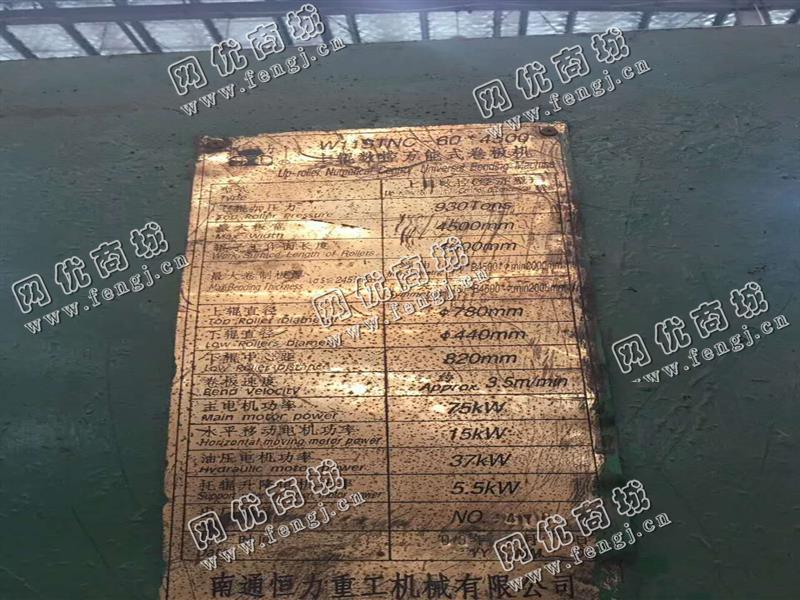 网优商城
www.fengj.cn
网优商城
www.fengj.cn
W11STNC 60*4500
上辊数控万能式卷板机
Up-roller Numerical Control Universal Bending Machine
Type
930Tons
Top Roller Pressure
最大板宽
4500mm
Max. Width
Work Surface Length of Rollers
最大卷制板厚
Max.Bending Thickness
上辊直径
φ780mm
Top Roller Diameter
下辊直径
φ440mm
Low Rollers Diameter
下辊中心距
820mm
Low Roller Distance
卷板速度
约
Approx. 3.5m/min
Bend Velocity
主电机功率
75kW
Main motor power
水平移动电机功率
15kW
Horizontal moving motor power
油压电机功率
37kW
Hydraulic motor power
托辊升降
5.5kW
Support
power
NO
南通恒力重工机械有限公司
网优商城
www.fengj.cn
网优商城
www.fengj.cn
网优商城
www.fengj.cn
网优商城
www.fengj.cn